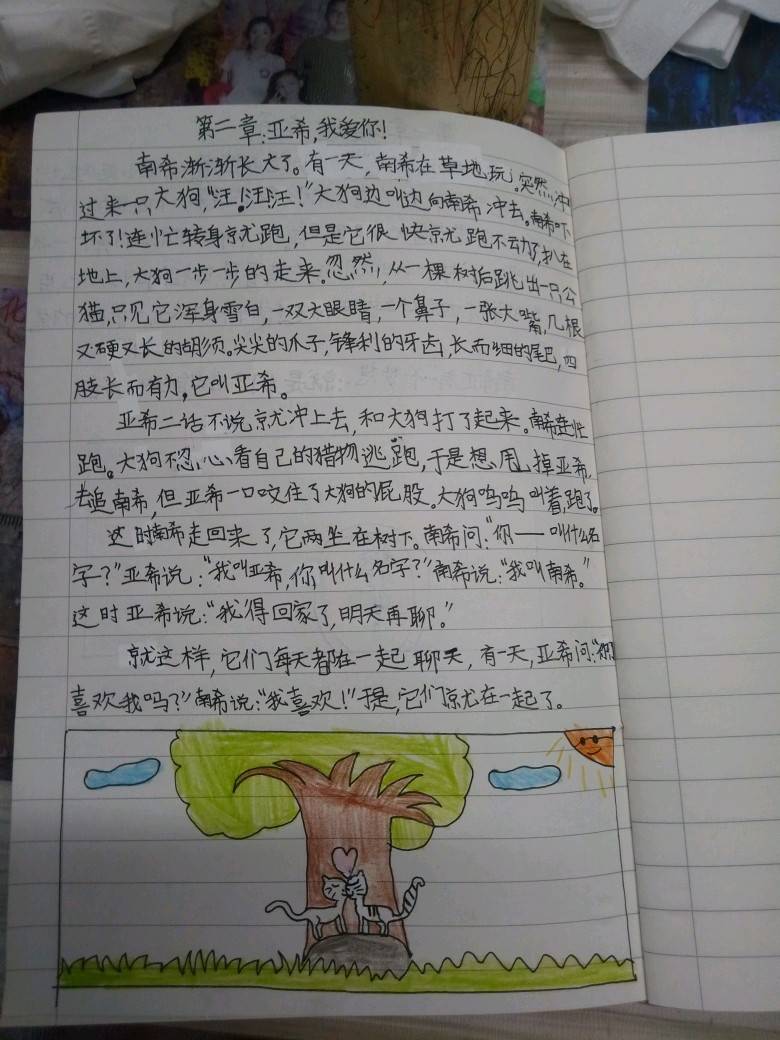 第二章:亚希,我爱你!
南希渐渐长大了。有一天,南希在草地玩。突然,冲
过来一只大狗,“汪!汪!汪!”大狗边叫边向南希冲去。南希吓
坏了!连忙转身就跑,但是它很快就跑不动了,扒在
地上,大狗一步一步的走来。忽然,从一棵树后跳出一只公
猫,只见它浑身雪白,一双大眼睛,一个鼻子,一张大嘴,几根
又硬又长的胡须。尖尖的爪子,锋利的牙齿,长而细的尾巴,四
肢长而有力,它叫亚希。
亚希二话不说就冲上去,和大狗打了起来。南希赶忙
跑。大狗不忍心看自己的猎物逃跑,于是想甩掉亚希,
去追南希,但亚希一口咬住了大狗的屁股。大狗呜呜叫着跑了。
这时南希走回来了,它两坐在树下。南希问:“你——叫什么名
字?”亚希说:“我叫亚希,你叫什么名字?”南希说:“我叫南希。”
这时亚希说:“我得回家了,明天再聊。”
就这样,它们每天都在一起聊天,有一天,亚希问:“你
喜欢我吗?”南希说:“我喜欢!”于是,它们就在一起了。